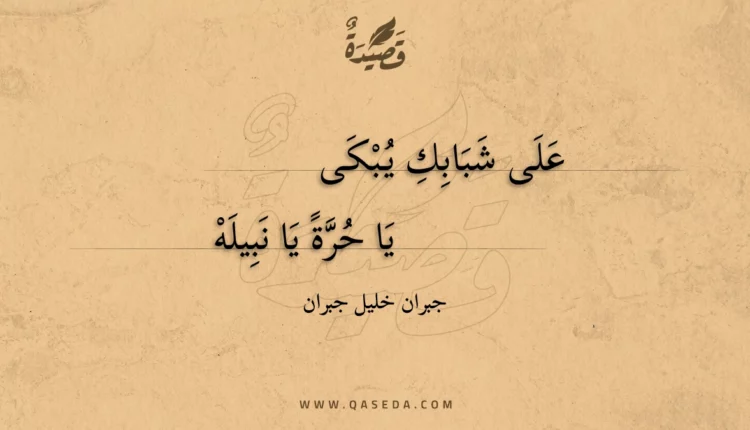 قَصِيدَةٌ
عَلَى شَبَابِكِ يُبْكَى
يَا حُرَّةً يَا نَبِيلَهْ
جبران خليل جبران
WWW.QASEDA.COM